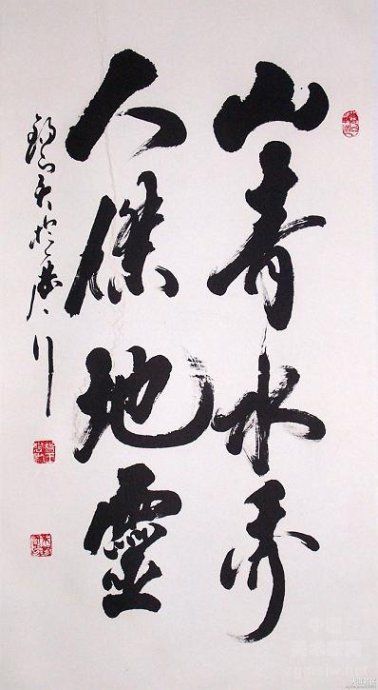 山青水秀
人傑地靈